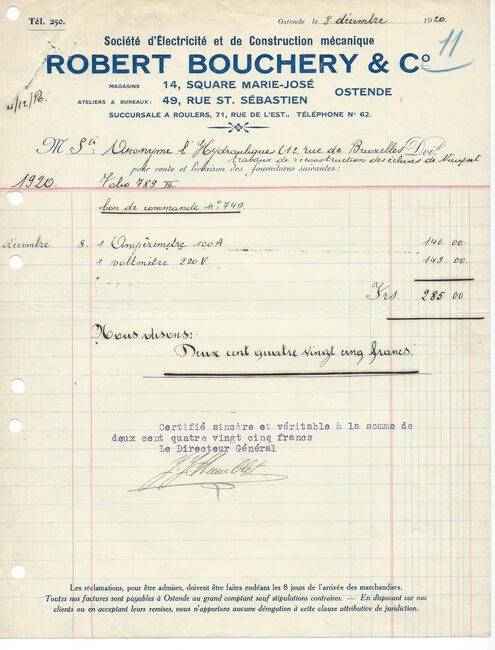 Tél. 250.
Ostende le 8 décembre 1920.
Société d'Électricité et de Construction mécanique
11
ROBERT BOUCHERY & Cº
MAGASINS 14, SQUARE MARIE-JOSÉ
OSTENDE
ATELIERS & BUREAUX : 49, RUE ST. SÉBASTIEN
SUCCURSALE A ROULERS, 71, RUE DE L'EST.. TÉLÉPHONE Nº 62.
M Sté: Anonyme l'Hydraulique 112 rue de Bruxelles Doit
travaux de reconstruction des écluses de Nieuport
pour vente et livraison des fournitures suivantes:
1920. Folio 789 III
bon de commande nº 749
décembre 8. 1 Ampèremètre 100 A. 140 00
1 voltmètre 220 V 145 00
Frs 285 00
Nous disons:
Deux cent quatre vingt cinq francs.
Certifié sincère et véritable à la somme de
deux cent quatre vingt cinq francs
Le Directeur Général
Les réclamations, pour être admises, doivent être faites endéans les 8 jours de l'arrivée des marchandises.
Toutes nos factures sont payables à Ostende au grand comptant sauf stipulations contraires. — En disposant sur nos
clients ou en acceptant leurs remises, nous n'apportons aucune dérogation à cette clause attributive de juridiction.